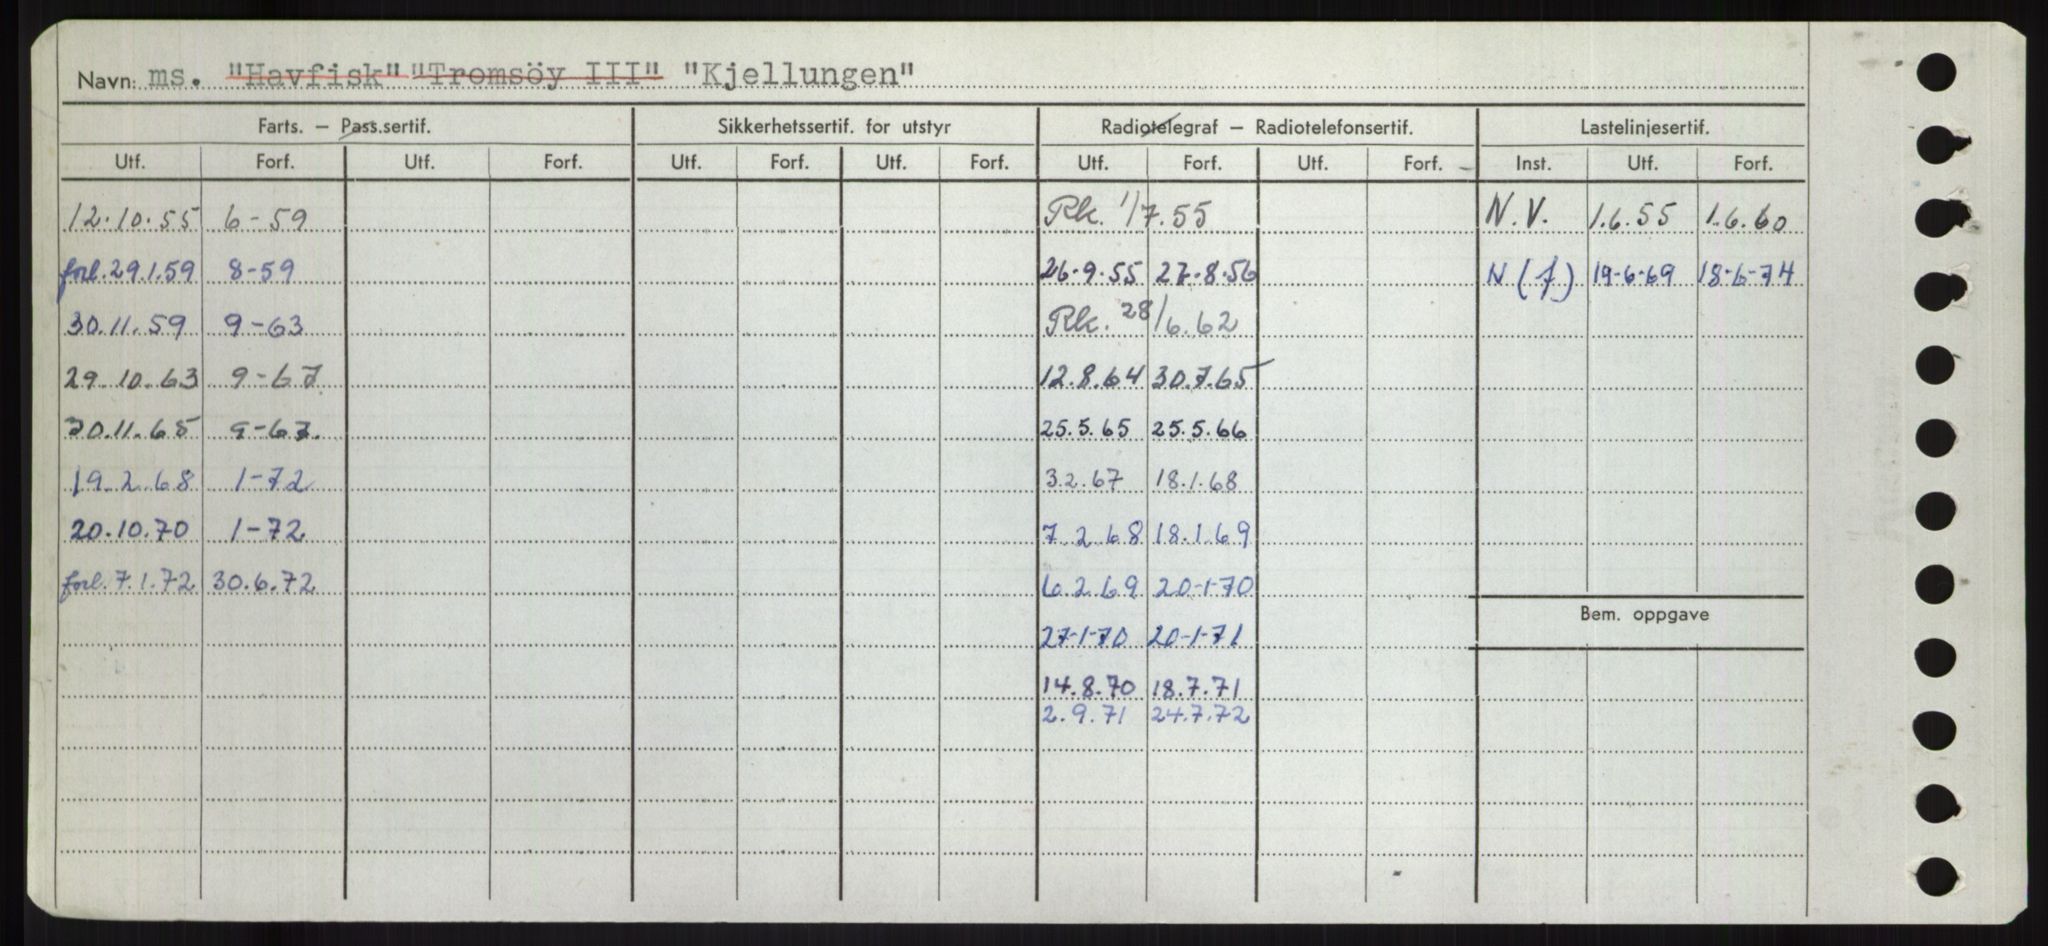 Navn: ms. "Havfisk" "Tromsöy III" "Kjellungen"
Farts. – Pass.sertif. Sikkerhetssertif. for utstyr Radiotelegraf – Radiotelefonsertif. Lastelinjesertif.
Utf. Forf. Utf. Forf. Utf. Forf. Utf. Forf. Utf. Forf. Utf. Forf. Inst. Utf. Forf.
12.10.55 6-59 Rk. 1/7.55 N.V. 1.6.55 1.6.60
forl. 29.1.59 8-59 26.9.55 27.8.56 N(f) 19-6-69 18-6-74
30.11.59 9-63 Rk. 28/6.62
29.10.63 9-67 12.8.64 30.7.65
30.11.65 9-67. 25.5.65 25.5.66
19.2.68 1-72 3.2.67 18.1.68
20.10.70 1-72 7.2.68 18.1.69
forl. 7.1.72 30.6.72 6.2.69 20-1-70
Bem. oppgave
27-1-70 20-1-71
14.8.70 18.7.71
2.9.71 24.7.72